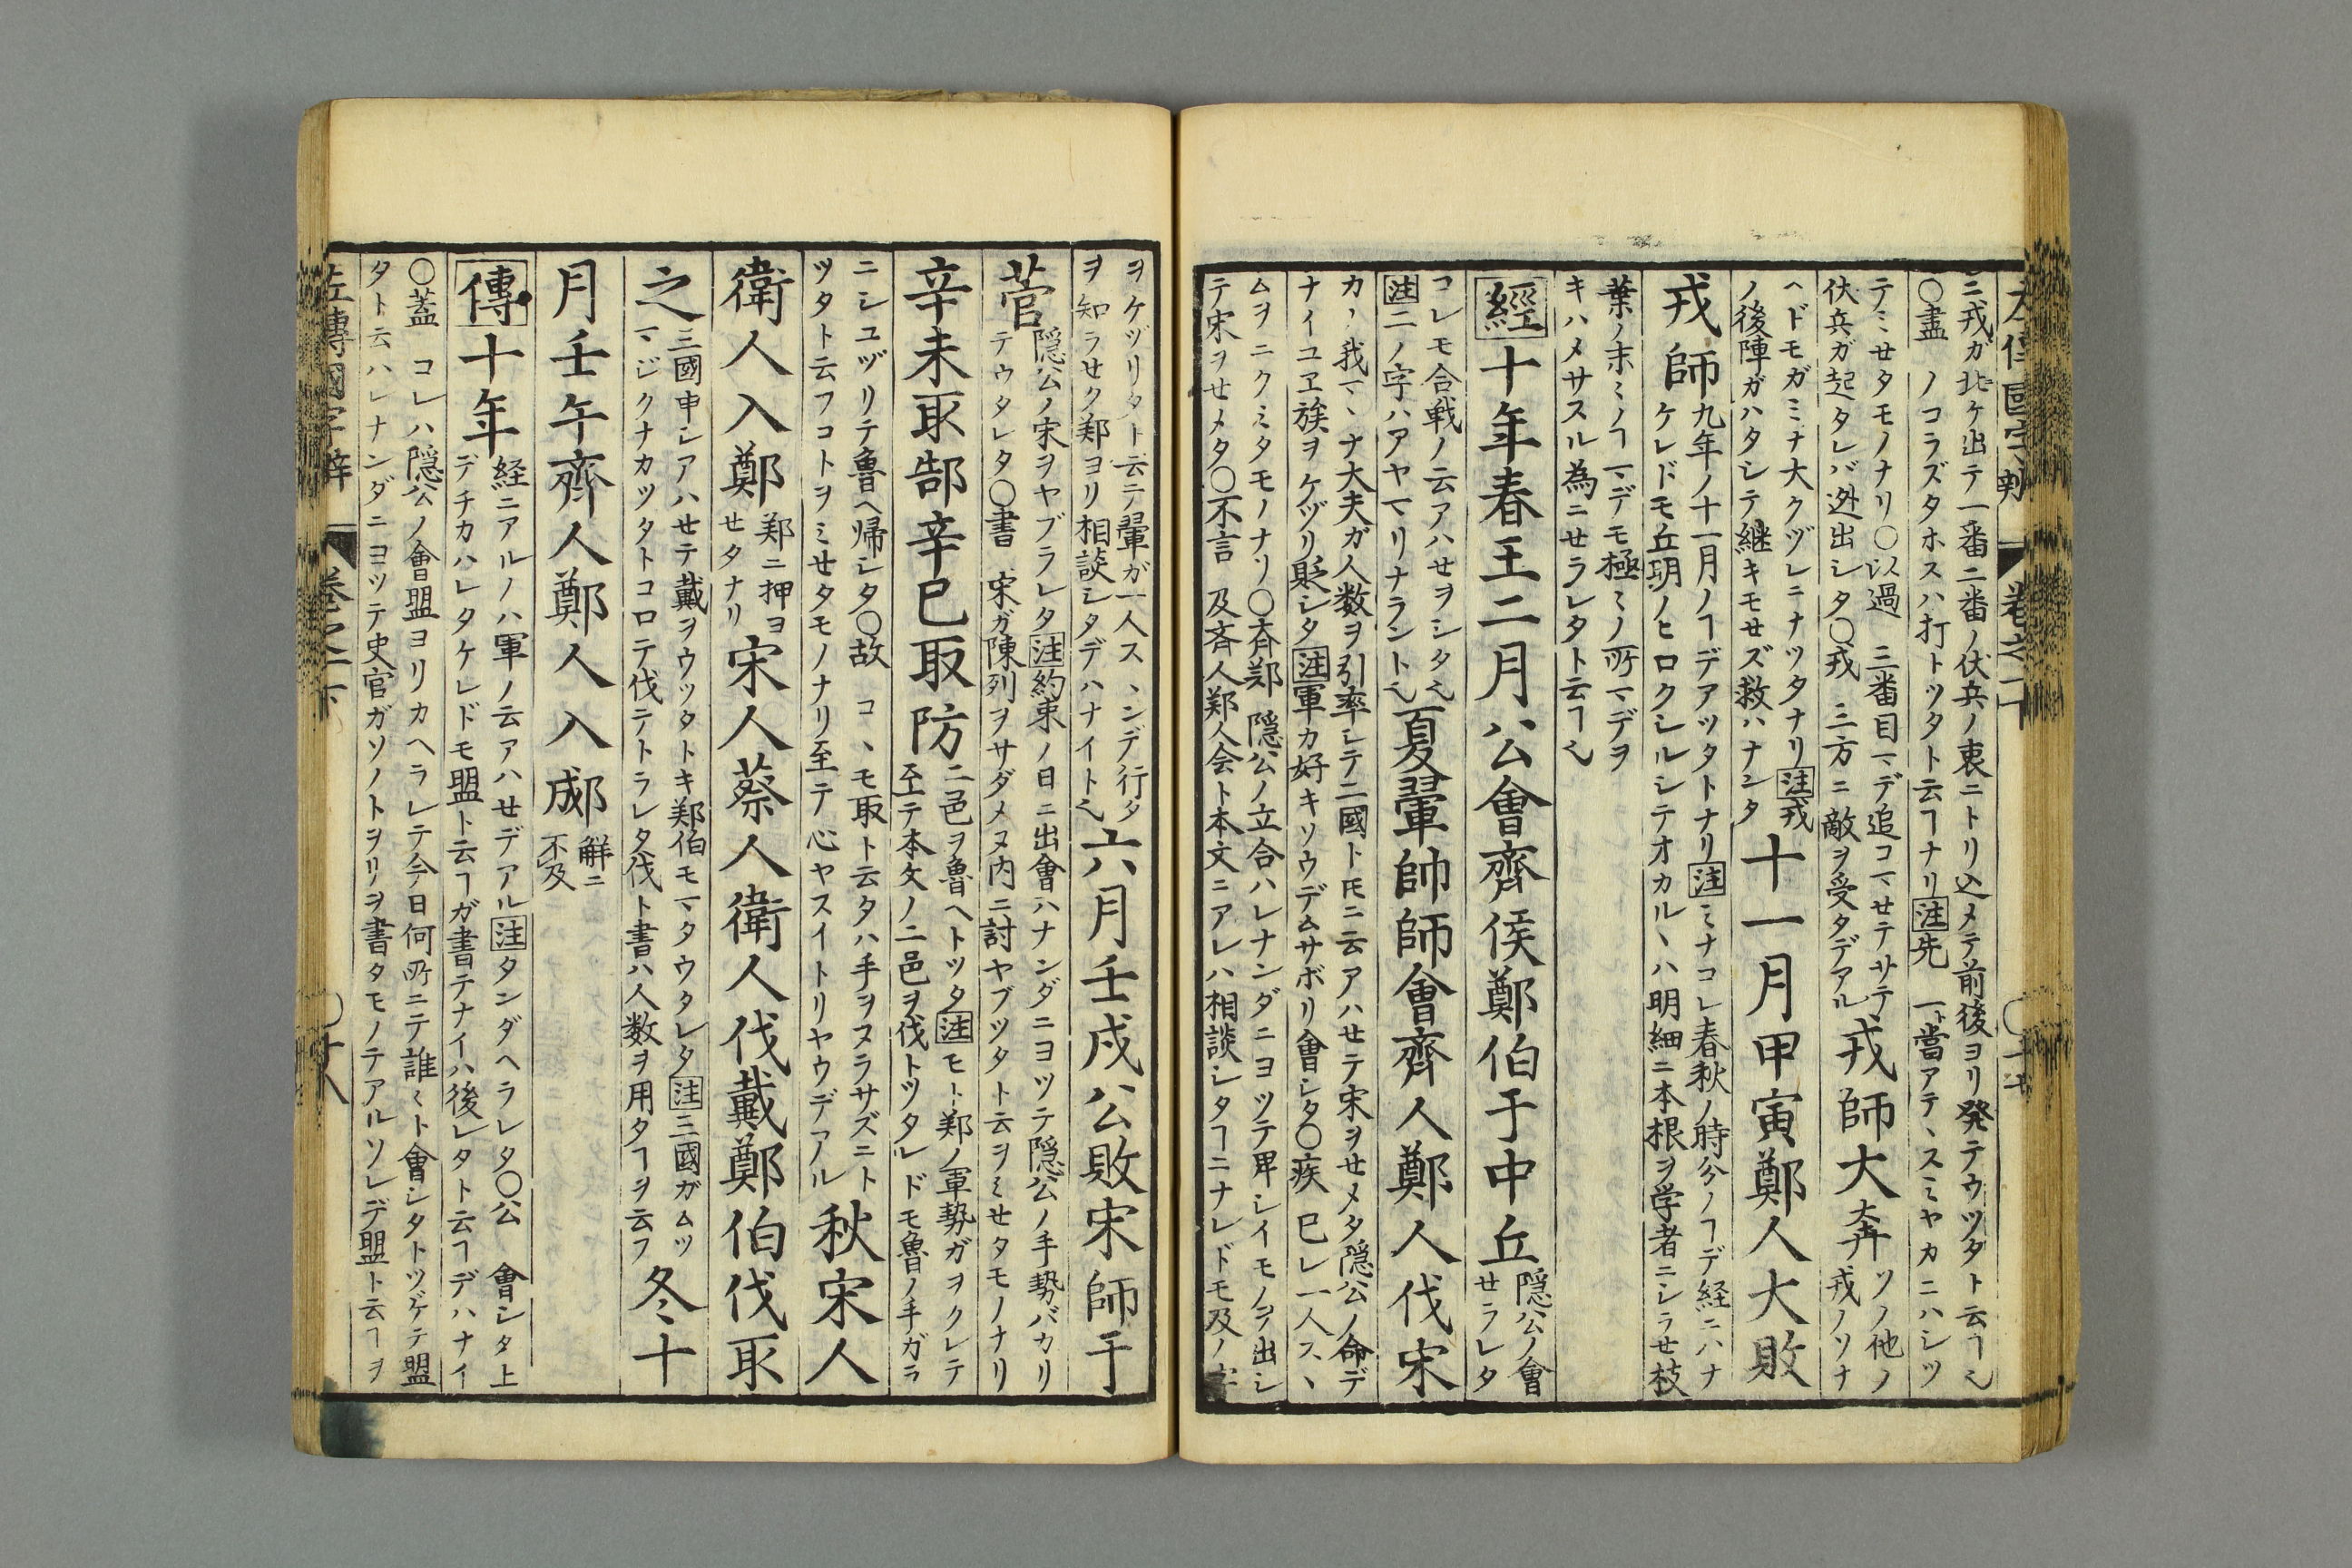 ニ戎ガ北ケ出テ一番二番ノ伏兵ノ衷ニトリ込メテ前後ヨリ発テウツタト云ヿ也
〇盡 ノコラズタホスハ打トツタト云ヿナリ注先 一ト當アテヽスミヤカニハシツ
テミセタモノナリ〇以過 三番目マデ追コマセテサテ
伏兵ガ起タレバ迯出シタ〇戎 三方ニ敵ヲ受タデアル
戎師大奔
ソノ他ノ
戎ノソナ
ヘドモガミナ大クヅレニナツタナリ注戎
ノ後陣ガハタシテ継キモセズ救ハナンタ
十一月甲寅鄭人大敗
戎師
九年ノ十一月ノヿデアツタトナリ注ミナコレ春秋ノ時分ノヿデ経ニハナ
ケレドモ丘明ノヒロクシルシテオカルヽハ明細ニ本根ヲ学者ニシラせ枝
葉ノ末ミノヿマデモ極ミノ所マデヲ
キハメサスル為ニせラレタト云ヿ也
經十年春王二月公會齊侯鄭伯于中丘
隠公ノ會
せラレタ
コレモ合戦ノ云アハせヲシタ也
注二ノ字ハアヤマリナラント也
夏翬帥師會齊人鄭人伐宋
カヽ我マヽナ大夫ガ人数ヲ引率シテ二國トモニ云アハせテ宋ヲせメタ隠公ノ命デ
ナイユヱ族ヲケヅリ貶シタ注軍カ好キソウデムサボリ會シタ〇疾 已レ一人スヽ
ムヲニクミタモノナリ〇斉鄭 隠公ノ立合ハレナンダニヨツテ卑シイモノヲ出シ
テ宋ヲせメタ〇不言 及斉人鄭人会ト本文ニアレハ相談シタヿニナレドモ及ノ字
ヲケヅリタト云テ翬ガ一人スヽンデ行タ
ヲ知ラせク鄭ヨリ相談シタデハナイト也
六月壬戌公敗宋師于
菅
隠公ノ宋ヲヤブラレタ注約束ノ日ニ出會ハナンダニヨツテ隠公ノ手勢バカリ
テウタレタ〇書 宋ガ陳列ヲサダメヌ内ニ討ヤブツタト云ヲミせタモノナリ
辛未取郜辛巳取防
二邑ヲ魯ヘトツタ注モト鄭ノ軍勢ガヲクレテ
至テ本文ノ二邑ヲ伐トツタレドモ魯ノ手ガラ
ニシユヅリテ魯ヘ帰シタ〇故 コヽモ取ト云タハ手ヲヌラサズニト
ツタト云フコトヲミせタモノナリ至テ心ヤスイトリヤウデアル
秋宋人
衛人入鄭
鄭ニ押ヨ
せタナリ
宋人蔡人衛人伐戴鄭伯伐取
之
三國申シアハせテ戴ヲウツタトキ鄭伯モマタウタレタ注三國ガムツ
マジクナカツタトコロテ伐テトラレタ伐ト書ハ人数ヲ用タヿヲ云フ
冬十
月壬午齊人鄭人入郕
解ニ
不及
傳十年
経ニアルノハ軍ノ云アハせデアル注タンダヘラレタ〇公 會シタ上
デチカハレタケレドモ盟ト云ヿガ書テナイハ後レタト云ヿデハナイ
〇蓋 コレハ隠公ノ會盟ヨリカヘラレテ今日何所ニテ誰ミト會シタトツゲテ盟
タト云ハレナンダニヨツテ史官ガソノトヲリヲ書タモノテアルソレデ盟ト云ヿヲ
左傳國字辯 巻之二下 〇十八